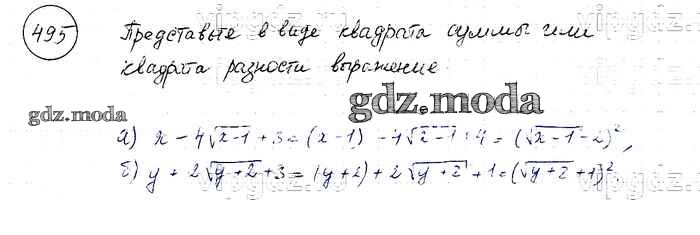 495 Представьте в виде квадрата суммы или
квадрата разности выражение
gdz.moda
gdz.moda
а) x - 4√x-1 + 3 = (x-1) - 4√x-1 + 4 = (√x-1 - 2)²,
б) y + 2√y+2 + 3 = (y+2) + 2√y+2 + 1 = (√y+2 + 1)².